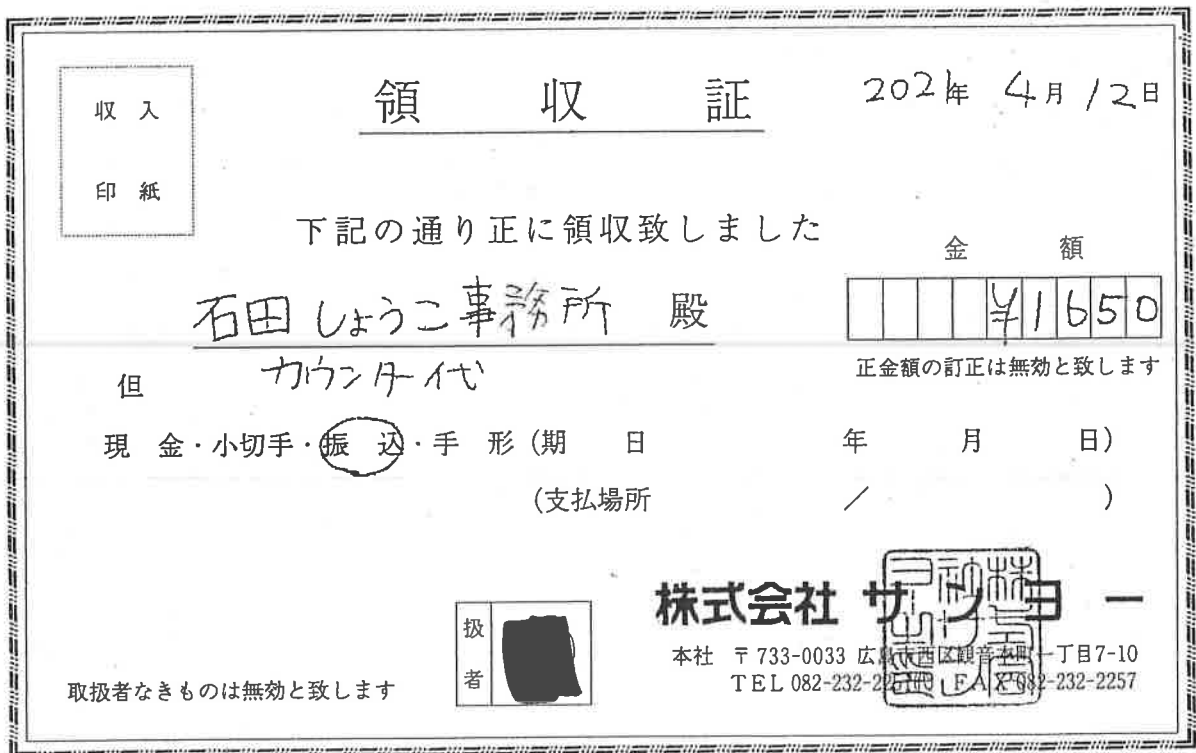 収入
印紙
領収証
2021年 4月 12日
下記の通り正に領収致しました
石田しょうこ事務所 殿
金額
¥1650
正金額の訂正は無効と致します
但 カウンター代
現金・小切手・振込・手形(期日 年 月 日)
(支払場所 / )
株式会社 サンヨー
本社 〒733-0033 広島市西区観音本町一丁目7-10
TEL 082-232- FAX 082-232-2257
扱者
取扱者なきものは無効と致します